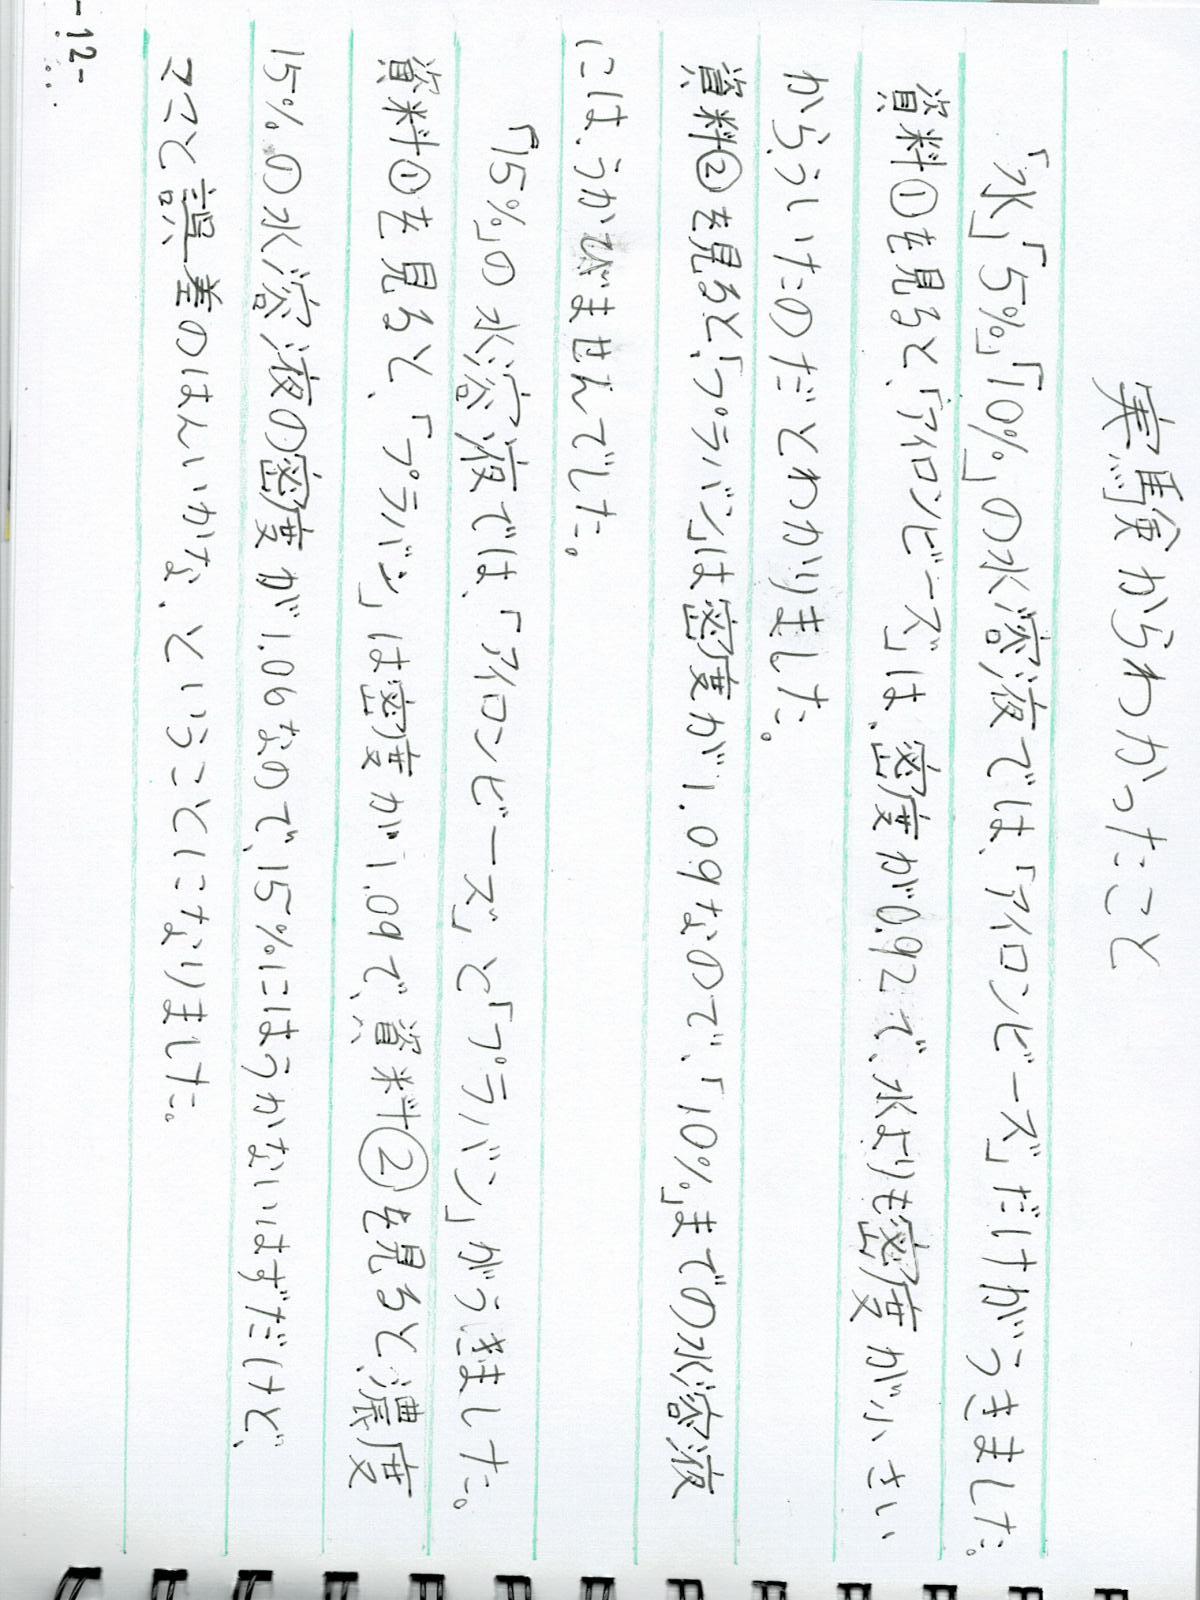 実験からわかったこと
「水」「5%」「10%」の水溶液では、「アイロンビーズ」だけがうきました。
資料①を見ると、「アイロンビーズ」は、密度が0.92で、水よりも密度が小さい
から、ういたのだとわかりました。
資料②を見ると、「プラバン」は密度が1.09なので、「10%」までの水溶液
には、うかびませんでした。
「15%」の水溶液では、「アイロンビーズ」と「プラバン」がうきました。
資料①を見ると、「プラバン」は密度が1.09で、資料②を見ると、濃度
15%の水溶液の密度が1.06なので、15%にはうかないはずだけど、
ママと誤差のはんいかな、ということになりました。
-12-